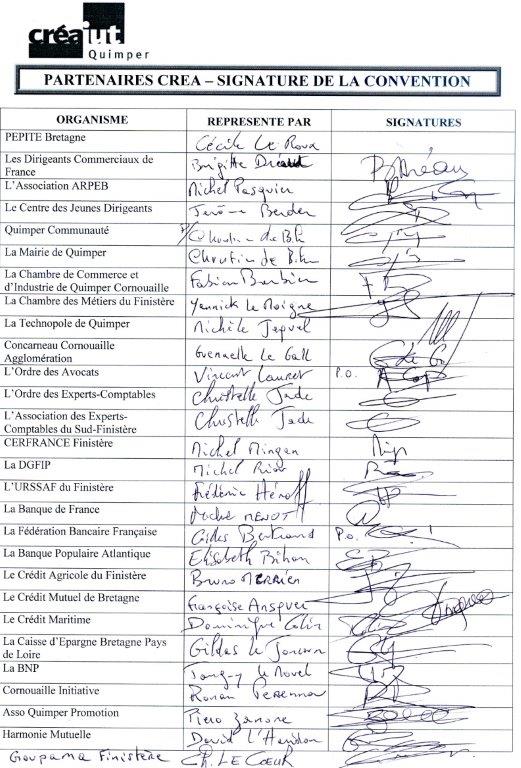 créaiut
Quimper
PARTENAIRES CREA – SIGNATURE DE LA CONVENTION
ORGANISME REPRESENTE PAR SIGNATURES
PEPITE Bretagne Cécile Le Roux
Les Dirigeants Commerciaux de
France Brigitte Dréau
L'Association ARPEB Michel Pasquier
Le Centre des Jeunes Dirigeants Jérôme Berder
Quimper Communauté Christin de Bih
La Mairie de Quimper Christin de Bih
La Chambre de Commerce et
d'Industrie de Quimper Cornouaille Fabien Barbier
La Chambre des Métiers du Finistère Yannick Le Moigne
La Technopole de Quimper Michèle Jequel
Concarneau Cornouaille
Agglomération Gwenaelle Le Gall
L'Ordre des Avocats Vincent Lauret P.O.
L'Ordre des Experts-Comptables Christelle Jade
L'Association des Experts-
Comptables du Sud-Finistère Christelle Jade
CERFRANCE Finistère Michel Mingan
La DGFIP Michel Riou
L'URSSAF du Finistère Frédéric Héroff
La Banque de France MENOT
La Fédération Bancaire Française Gildas Bertrand P.o.
La Banque Populaire Atlantique Elisabeth Bihan
Le Crédit Agricole du Finistère Bruno MERRIEN
Le Crédit Mutuel de Bretagne Françoise Ansquer
Le Crédit Maritime Dominique Colin
La Caisse d'Epargne Bretagne Pays
de Loire Gildas Le
La BNP Tanguy le Novel
Cornouaille Initiative Ronan Perennou
Asso Quimper Promotion Piero Zanone
Harmonie Mutuelle David L'Haridon
Goupama Finistère Ch. LE CŒUR